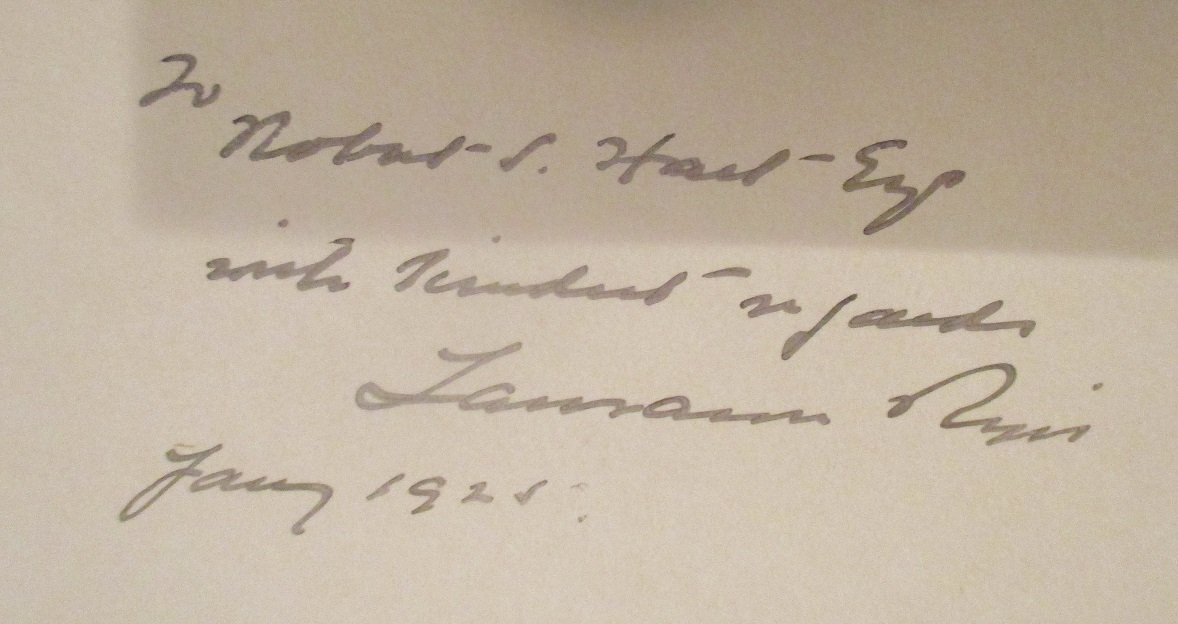 To
Robert S. Hart Esq
with kindest regards
Ryis
Jany 1925.